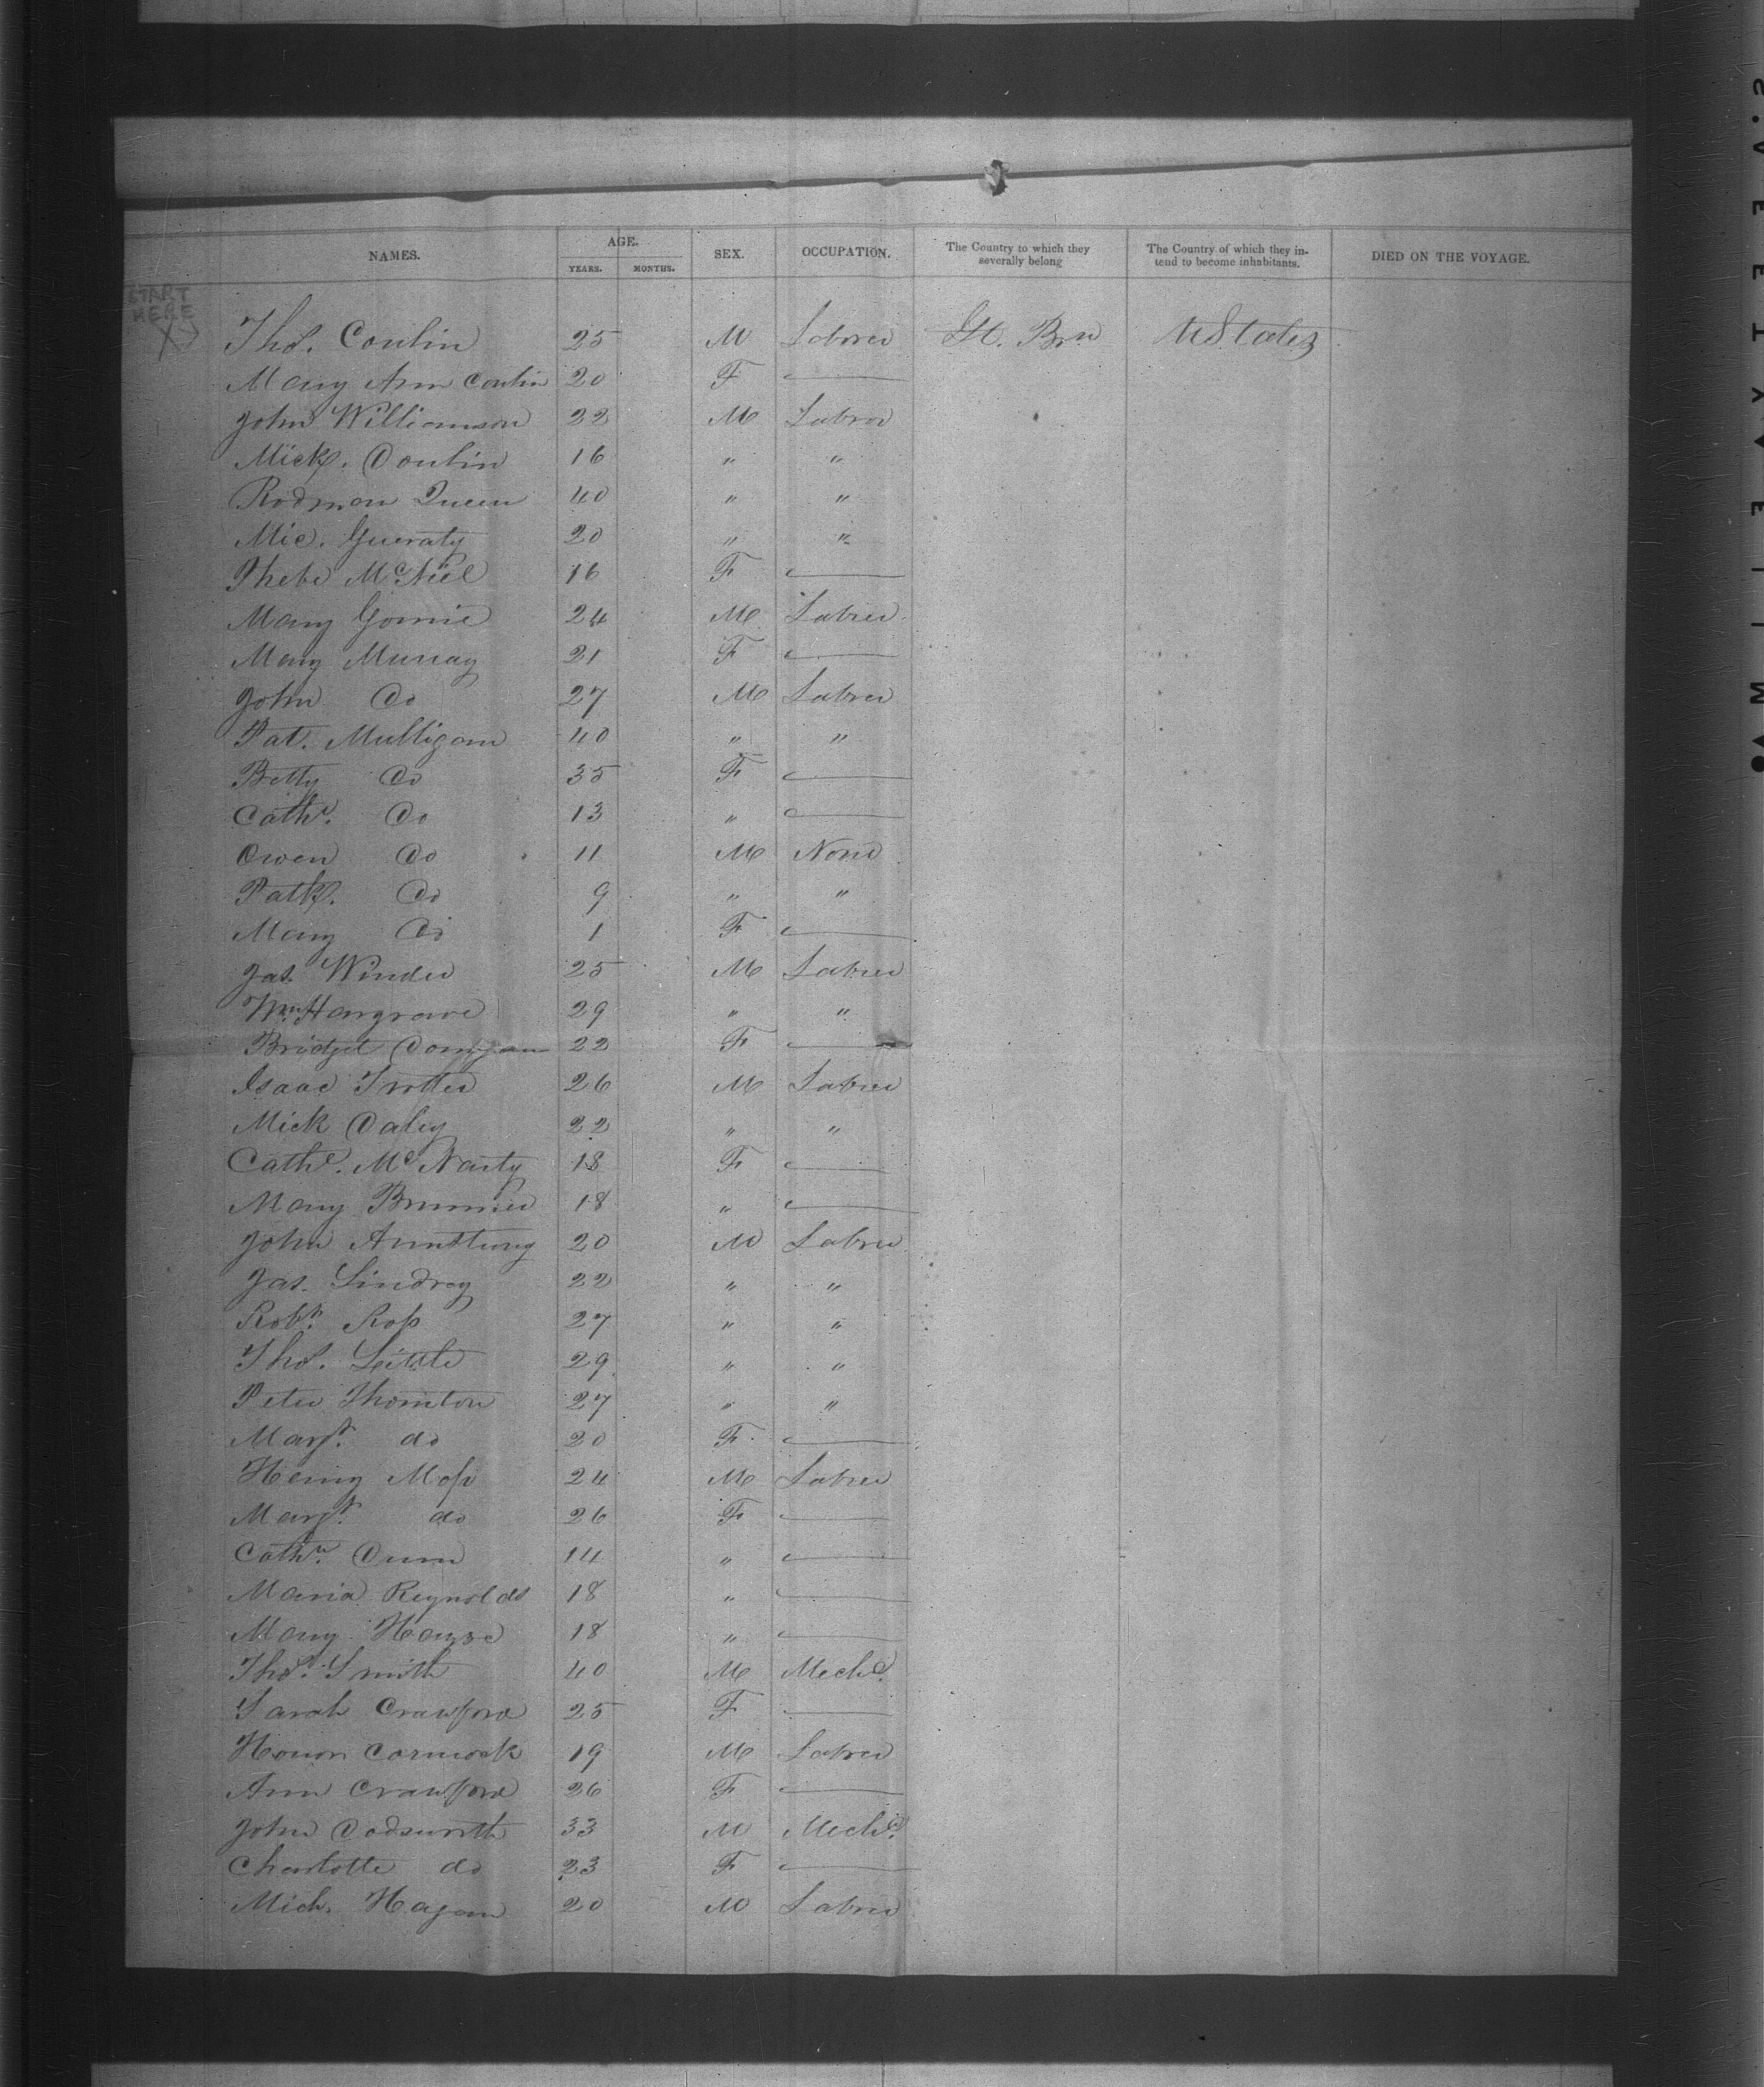 NAMES. AGE. SEX. OCCUPATION. The Country to which they severally belong The Country of which they intend to become inhabitants. DIED ON THE VOYAGE.
YEARS. MONTHS.
START HERE
Thos. Conlin 25 M Laborer Gt. Brn U States
Mary Ann Conlin 20 F —
John Williamson 22 M Labror
Mick. Donlin 16 " "
Rodman Queen 40 " "
Mic. Gueraty 20 " "
Phebe McNiel 16 F —
Mary Gornie 24 M Labrer
Mary Murray 21 F —
John Do 27 M Labrer
Pat. Mulligan 40 " "
Betty Do 35 F —
Cathe. Do 13 " —
Owen Do 11 M None
Patk. Do 9 " "
Mary Do 1 F —
Jas. Winder 25 M Labrer
Wm Hargrave 29 " "
Bridget 22 F —
Isaac Trotter 26 M Labrer
Mick Daley 22 " "
Cathe. McNarty 18 F —
Mary 18 " —
John Armstrung 20 M Labrer
Jas. Lindray 22 " "
Robt. Ross 27 " "
Thos. 29 " "
Peter Thornton 27 " "
Margt. do 20 F —
Henry Moss 24 M Labrer
Margt. do 26 F —
Cathn. Dunn 14 " —
Maria Reynolds 18 " —
Mary 18 " —
Thos. Smith 40 M Mechc.
Sarah Crawford 25 F —
Honor Cormack 19 M Labrer
Ann Crawford 26 F —
John Dodsworth 33 M Mechc.
Charlotte do 23 F —
Mich. Hagan 20 M Labrer